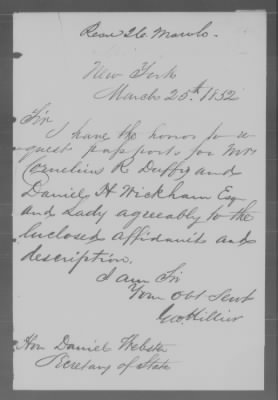 Recd 26 March.
New York
March 25th 1852
Sir
I have the honor to re
quest passports for Mr
Cornelius R Duffy and
Daniel H Wickham Esq
and Lady agreeably to the
enclosed affidavits and
description.
I am Sir
Your Obt Servt
Geo Hillier
Hon Daniel Webster
Secretary of State